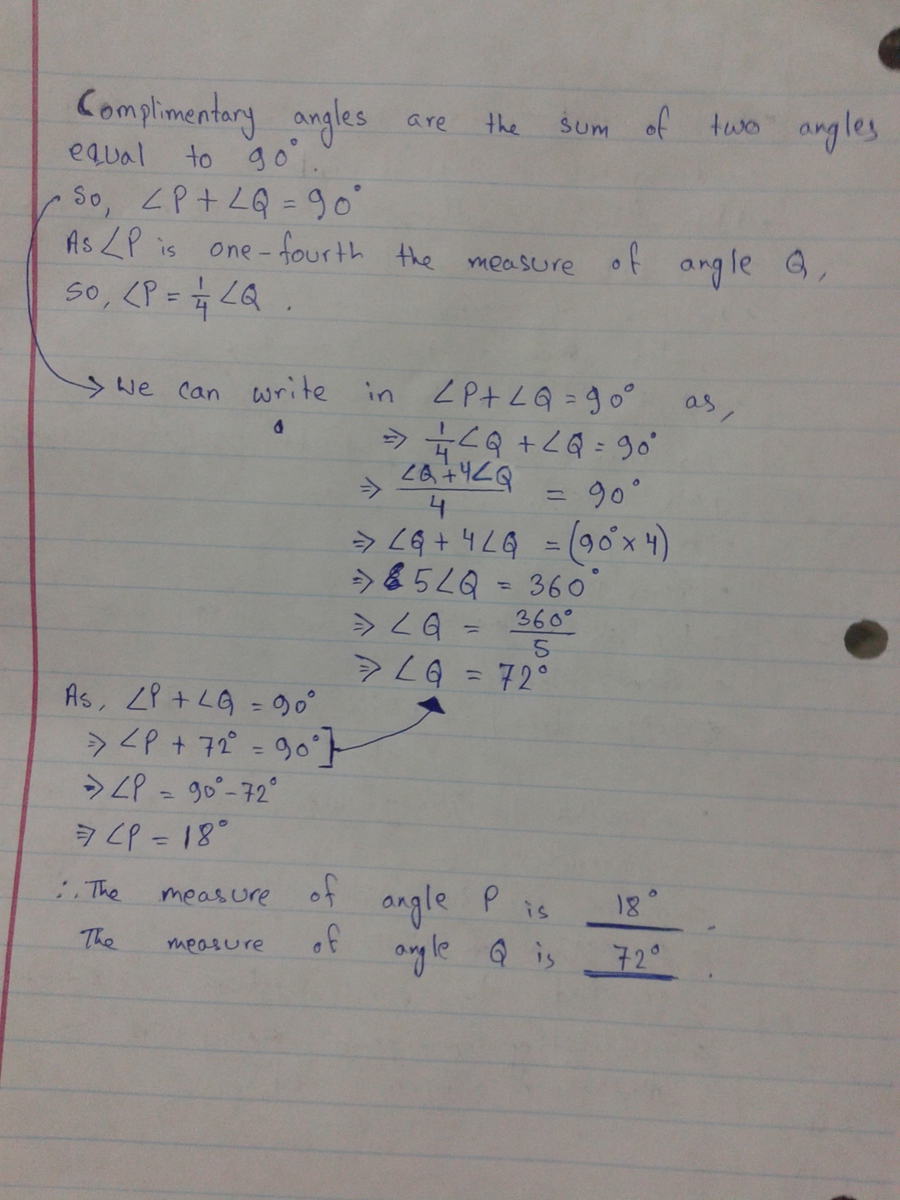 Complimentary angles are the sum of two angles
equal to 90°.
So, ∠P + ∠Q = 90°
As ∠P is one-fourth the measure of angle Q,
so, ∠P = 1/4 ∠Q .
→ We can write in ∠P + ∠Q = 90° as,
⇒ 1/4 ∠Q + ∠Q = 90°
⇒ (∠Q + 4∠Q)/4 = 90°
⇒ ∠Q + 4∠Q = (90° × 4)
⇒ 5∠Q = 360°
⇒ ∠Q = 360°/5
⇒ ∠Q = 72°
As, ∠P + ∠Q = 90°
⇒ ∠P + 72° = 90°]
⇒ ∠P = 90° - 72°
⇒ ∠P = 18°
∴ The measure of angle P is 18° .
The measure of angle Q is 72° .